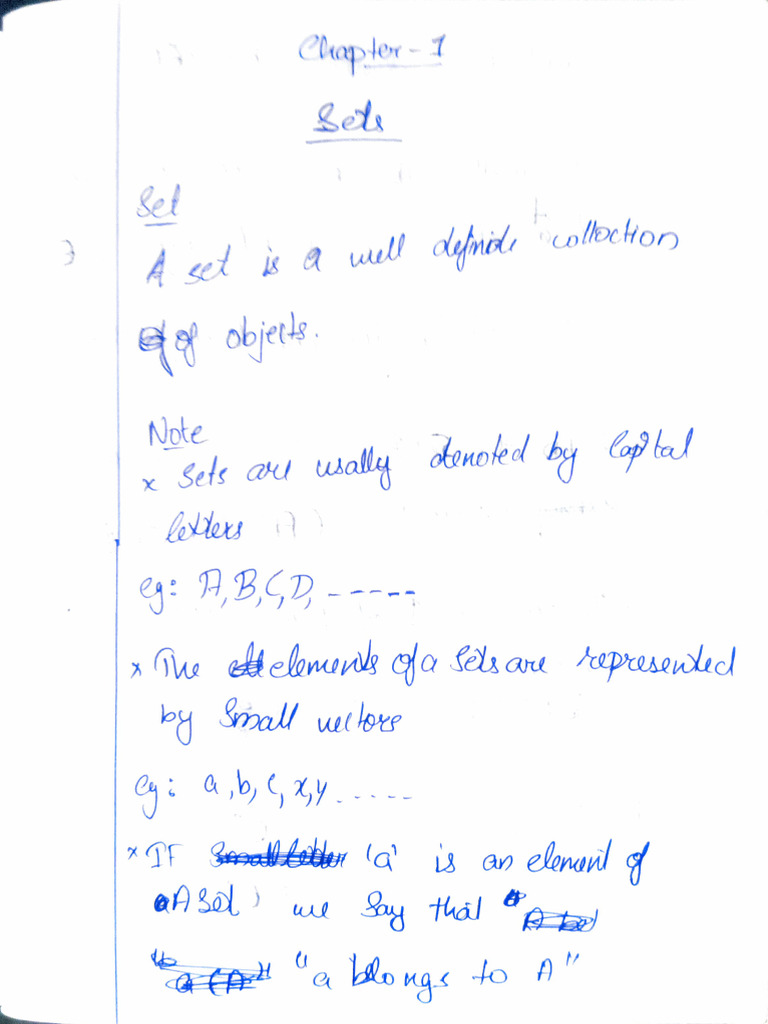 Chapter - 1
Sets
Set
A set is a well definide colloction
of objects.
Note
x Sets are usally denoted by Capital
letters
eg: A, B, C, D, -----
x The elements of a Sets are represented
by Small vectors
eg: a, b, c, x, y .....
x IF 'a' is an element of
A Set, we say that
"a blongs to A"